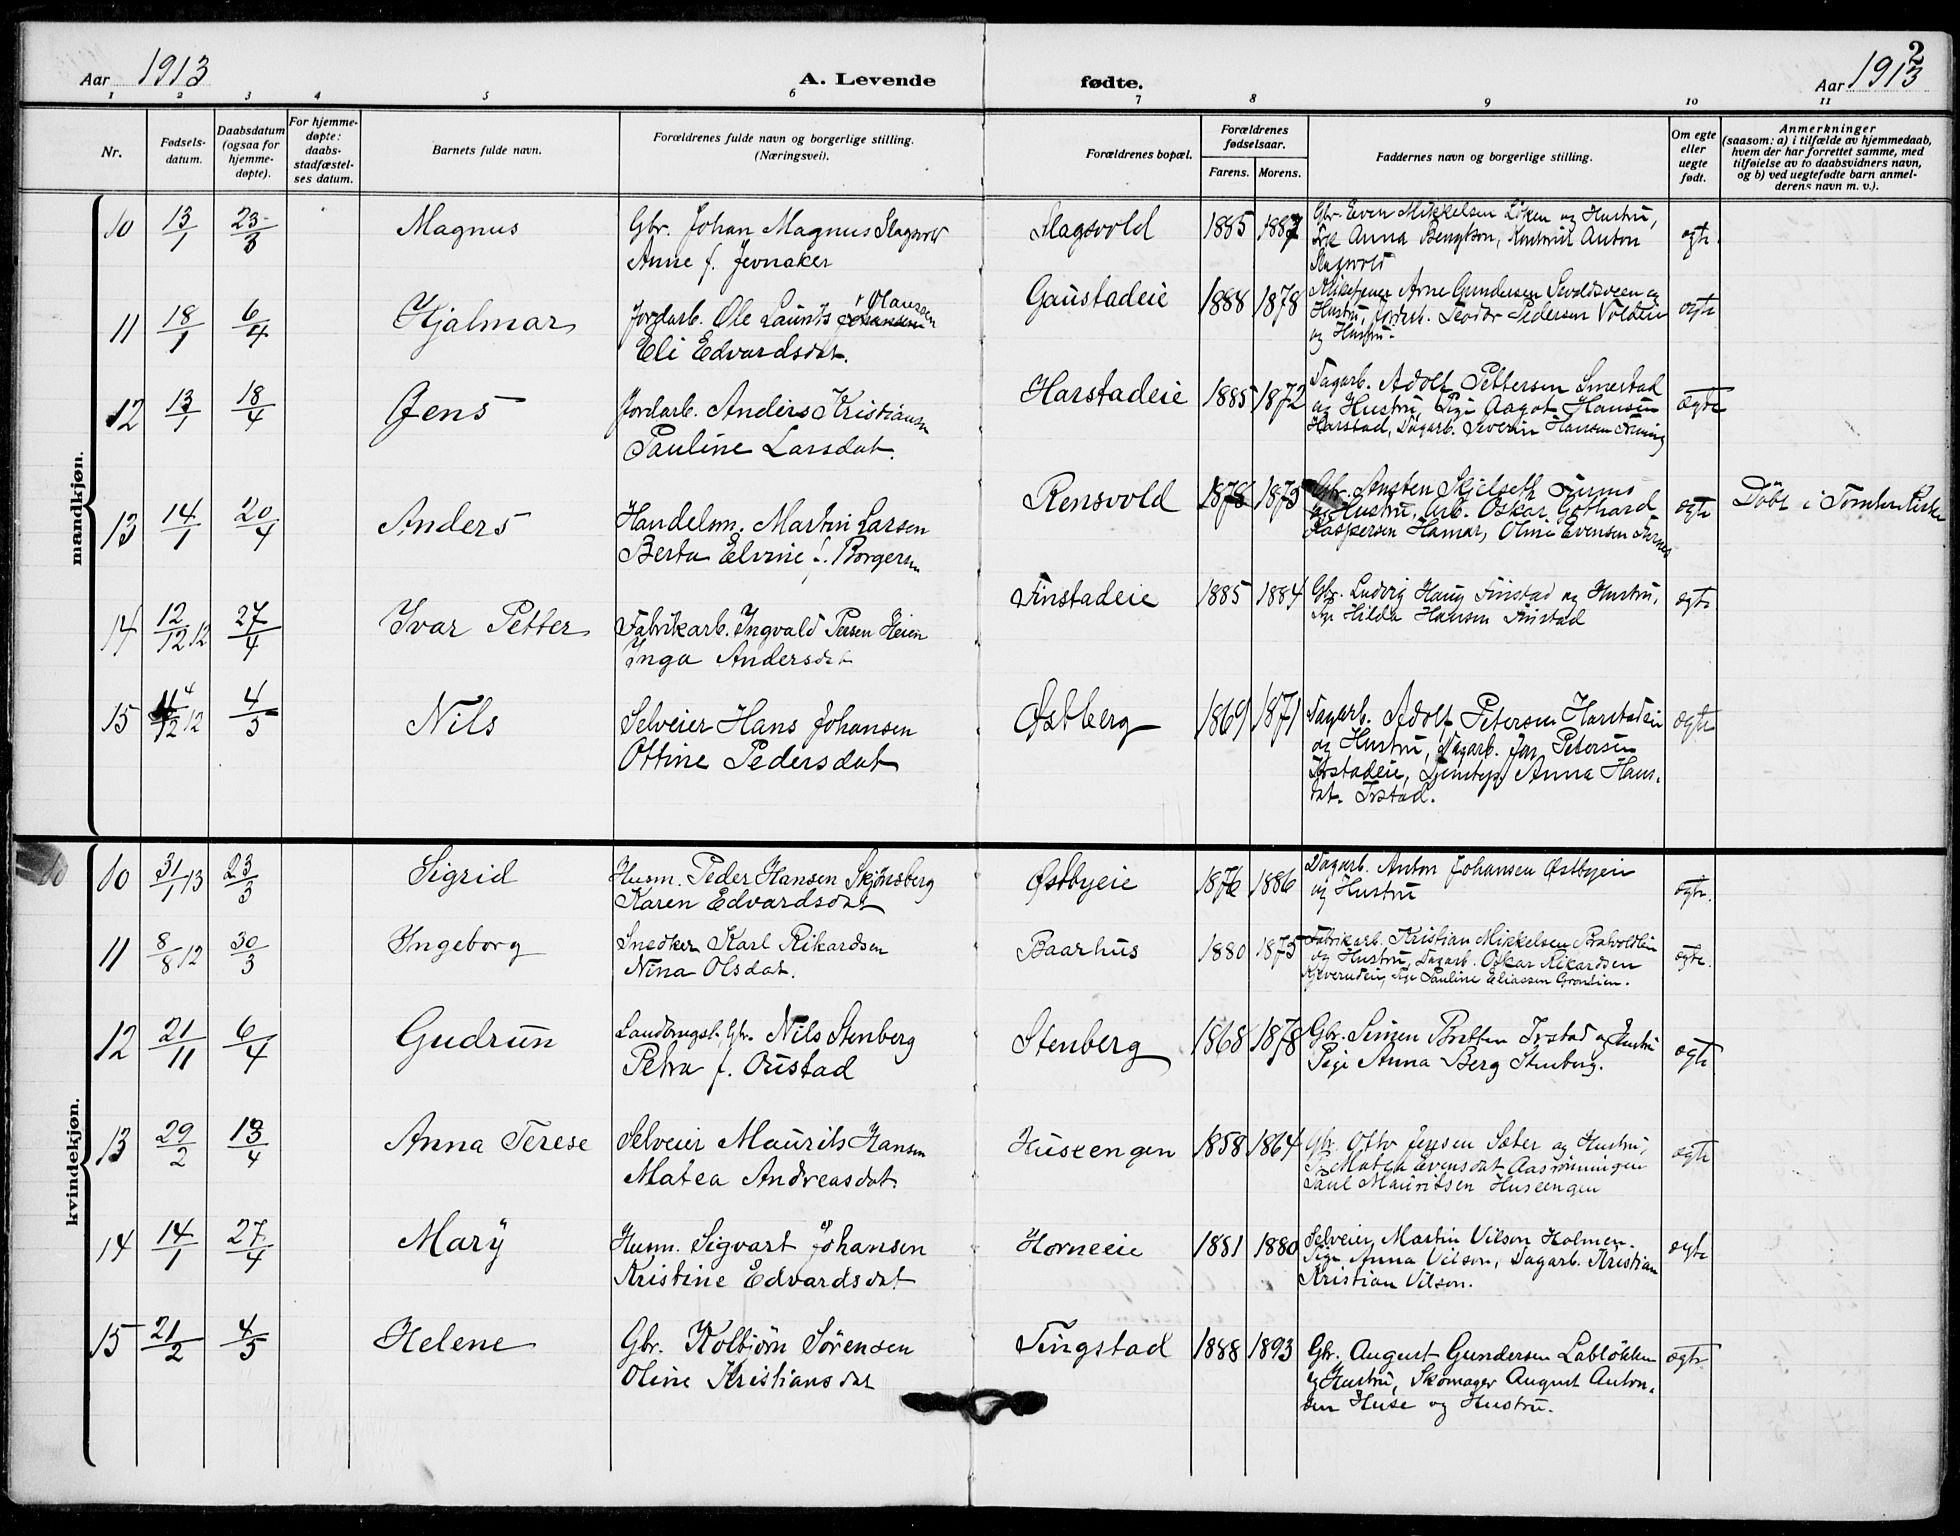 2
Aar 1913
A. Levende fødte.
Aar 1913
1 2 3 4 5 6 7 8 9 10 11
Nr.
Fødsels-
datum.
Daabsdatum
(ogsaa for
hjemme-
døpte).
For hjemme-
døpte:
daabs-
stadfæstel-
ses datum.
Barnets fulde navn.
Forældrenes fulde navn og borgerlige stilling.
(Næringsvei).
Forældrenes bopæl.
Forældrenes
fødselsaar.
Farens. Morens.
Faddernes navn og borgerlige stilling.
Om egte
eller
uegte
født.
Anmerkninger
(saasom: a) i tilfælde av hjemmedaab,
hvem der har forrettet samme, med
tilføielse av to daabsvidners navn,
og b) ved uegtefødte barn anmel-
derens navn m. v.).
mandkjøn.
10 13/1 23/3 Magnus
Gbr. Johan Magnus Slagsvold
Anne f. Jevnaker
Slagsvold 1885 1887
Gbr. Even Mikkelsen Løken og Hustru,
Anna Bengtson, Anton
Slagsvold
egte
11 18/1 6/4 Hjalmar
Jordarb. Ole Laurits Johansen Olausen
Eli Edvardsdat.
Gaustadeie 1888 1878
Arne Gundersen og
Hustru, Jordarb. Teodor Pedersen
og Hustru.
egte
12 13/1 18/4 Jens
Jordarb. Anders Kristiansen
Pauline Larsdat.
Harstadeie 1885 1872
Dagarb. Adolf Pettersen Smestad
og Hustru, Pige Aagot Hansen
Harstad, Dagarb. Severin Hansen
Egte
13 14/1 20/4 Anders
Handelsm. Martin Larsen
Berta Elvine f. Borgersen
Rensvold 1878 1875
Gbr. Austen Skjelseth Furnes
og Hustru, Arb. Oskar Gothard
Kaspersen Hamar, Oline Evensen Furnes
egte
Døbt i Tomter Kirke
14 12/12 12 27/4 Ivar Petter
Fabrikarb. Ingvald Persen Heien
Inga Andersdat
Finstadeie 1885 1884
Gbr. Ludvig Haug Finstad og Hustru,
Pige Hilda Hansen Finstad
egte
15 /12 12 4/5 Nils
Selveier Hans Johansen
Ottine Pedersdat
Østberg 1869 1871
Dagarb. Adolf Petersen Harstadeie
og Hustru, Dagarb. Petersen
Tjenstep. Anna Hans-
dat. Irstad.
egte
kvindekjøn.
10 31/1 13 23/3 Sigrid
Husm. Peder Hansen Skjønsberg
Karen Edvardsdat
Østbyeie 1876 1886
Dagarb. Anton Johansen Østbyeie
og Hustru
egte.
11 8/8 12 30/3 Ingeborg
Snedker Karl Rikardsen
Nina Olsdat.
Baarhus 1880 1875
Fabrikarb. Kristian Mikkelsen
og Hustru, Dagarb. Oskar Rikardsen
Pige Pauline Eliassen
egte.
12 21/11 6/4 Gudrun
Landbrugst. Gbr. Nils Stenberg
Petra f. Oustad
Stenberg 1868 1878
Gbr. Simen Bratten Irstad og Hustru
Pige Anna Berg Stenberg.
egte
13 29/2 13/4 Anna Terese
Selveier Maurits Hansen
Matea Andreasdat.
Huseengen 1858 1864
Gbr. Otto Jensen Sæter og Hustru,
Matea Evensdat Aasrønningen
Paul Mauritsen Huseengen
egte
14 14/1 27/4 Mary
Husm. Sigvart Johansen
Kristine Edvardsdat
Horneeie 1881 1880
Selveier Martin Vilson Holmen.
Pige Anna Vilson, Dagarb. Kristian
Kristian Vilson.
egte
15 21/2 4/5 Helene
Gbr. Kolbjørn Sørensen
Oline Kristiansdat
Tingstad 1888 1893
Gbr. August Gundersen Labløkken
og Hustru, Skomager August Anton-
sen Huse og Hustru.
egte